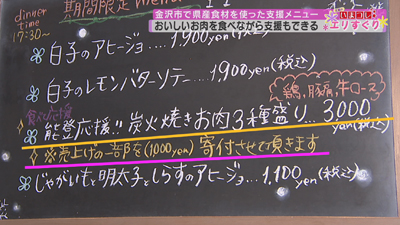 dinner time
17:30~
期間限定 menu
金沢市で県産食材を使った支援メニュー
おいしいお肉を食べながら支援もできる
いしかわ
エリすぐり
白子のアヒージョ...1,900yen(税込)
白子のレモンバターソテー...1,900yen(税込)
食べて応援
鶏、豚肩、牛ロース
能登応援!! 炭火焼きお肉3種盛り...3,000yen(税込)
※売上げの一部を(1000yen)寄付させて頂きます
じゃがいもと明太子としらすのアヒージョ...1,100yen(税込)